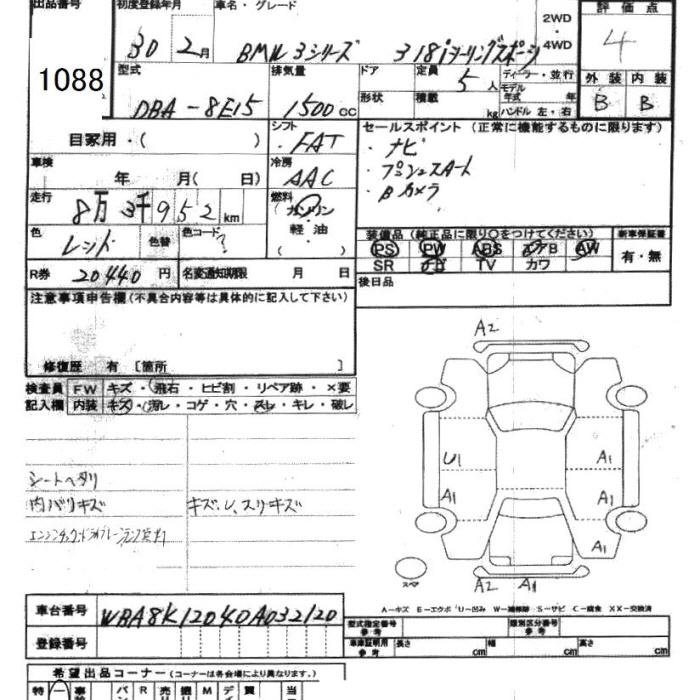 出品番号 初度登録年月 車名・グレード 評価点
1088 30 2月 BMW 3シリーズ 318i ツーリングスポーツ 2WD・4WD 4
型式 排気量 ドア 定員 ディーラー・並行 外装 内装
DBA-8E15 1500cc 5人 モデル年式 年 B B
形状 積載 kg ハンドル 左・右
自家用・( ) シフト ・FAT セールスポイント (正常に機能するものに限ります)
・ナビ
車検 年 月( 日) 冷房 AAC ・プッシュスタート
・Bカメラ
走行 8万3千952km 燃料 (ガソリン・軽油・( )
色 レッド 色替 色コード ? 装備品 (純正品に限り○をつけてください) 新車保証書
PS PW ABS AW 有・無
SR TV カワ
R券 20440円 名変通知期限 月 日 後日品
注意事項申告欄(不具合内容等は具体的に記入して下さい)
修復歴 有 [箇所 ]
検査員 FW キズ・飛石・ヒビ割・リペア跡・×要
記入欄 内装 キズ・汚レ・コゲ・穴・スレ・キレ・破レ
A2
U1 A1
シートヘタリ A1 A1
内バリキズ キズ、レ、スリキズ
A1
スペア
A2 A1
A−キズ E−エクボ U−凹み W−補修跡 S−サビ C−腐食 XX−交換済
車台番号 WBA8K12040A032120
型式指定番号 参考 類別区分番号 参考
登録番号 車庫証明用 参考 長さ cm 幅 cm 高さ cm
希望出品コーナー (コーナーは各会場により異なります。)
特 一 バン R 売 M デ 買 当